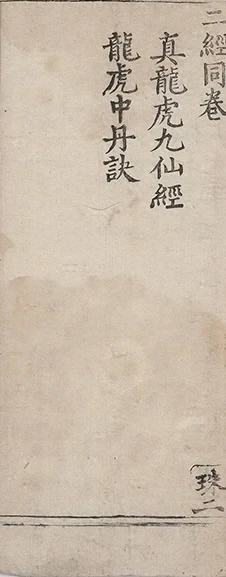 二經同卷
真龍虎九仙經
龍虎中丹訣
珠二